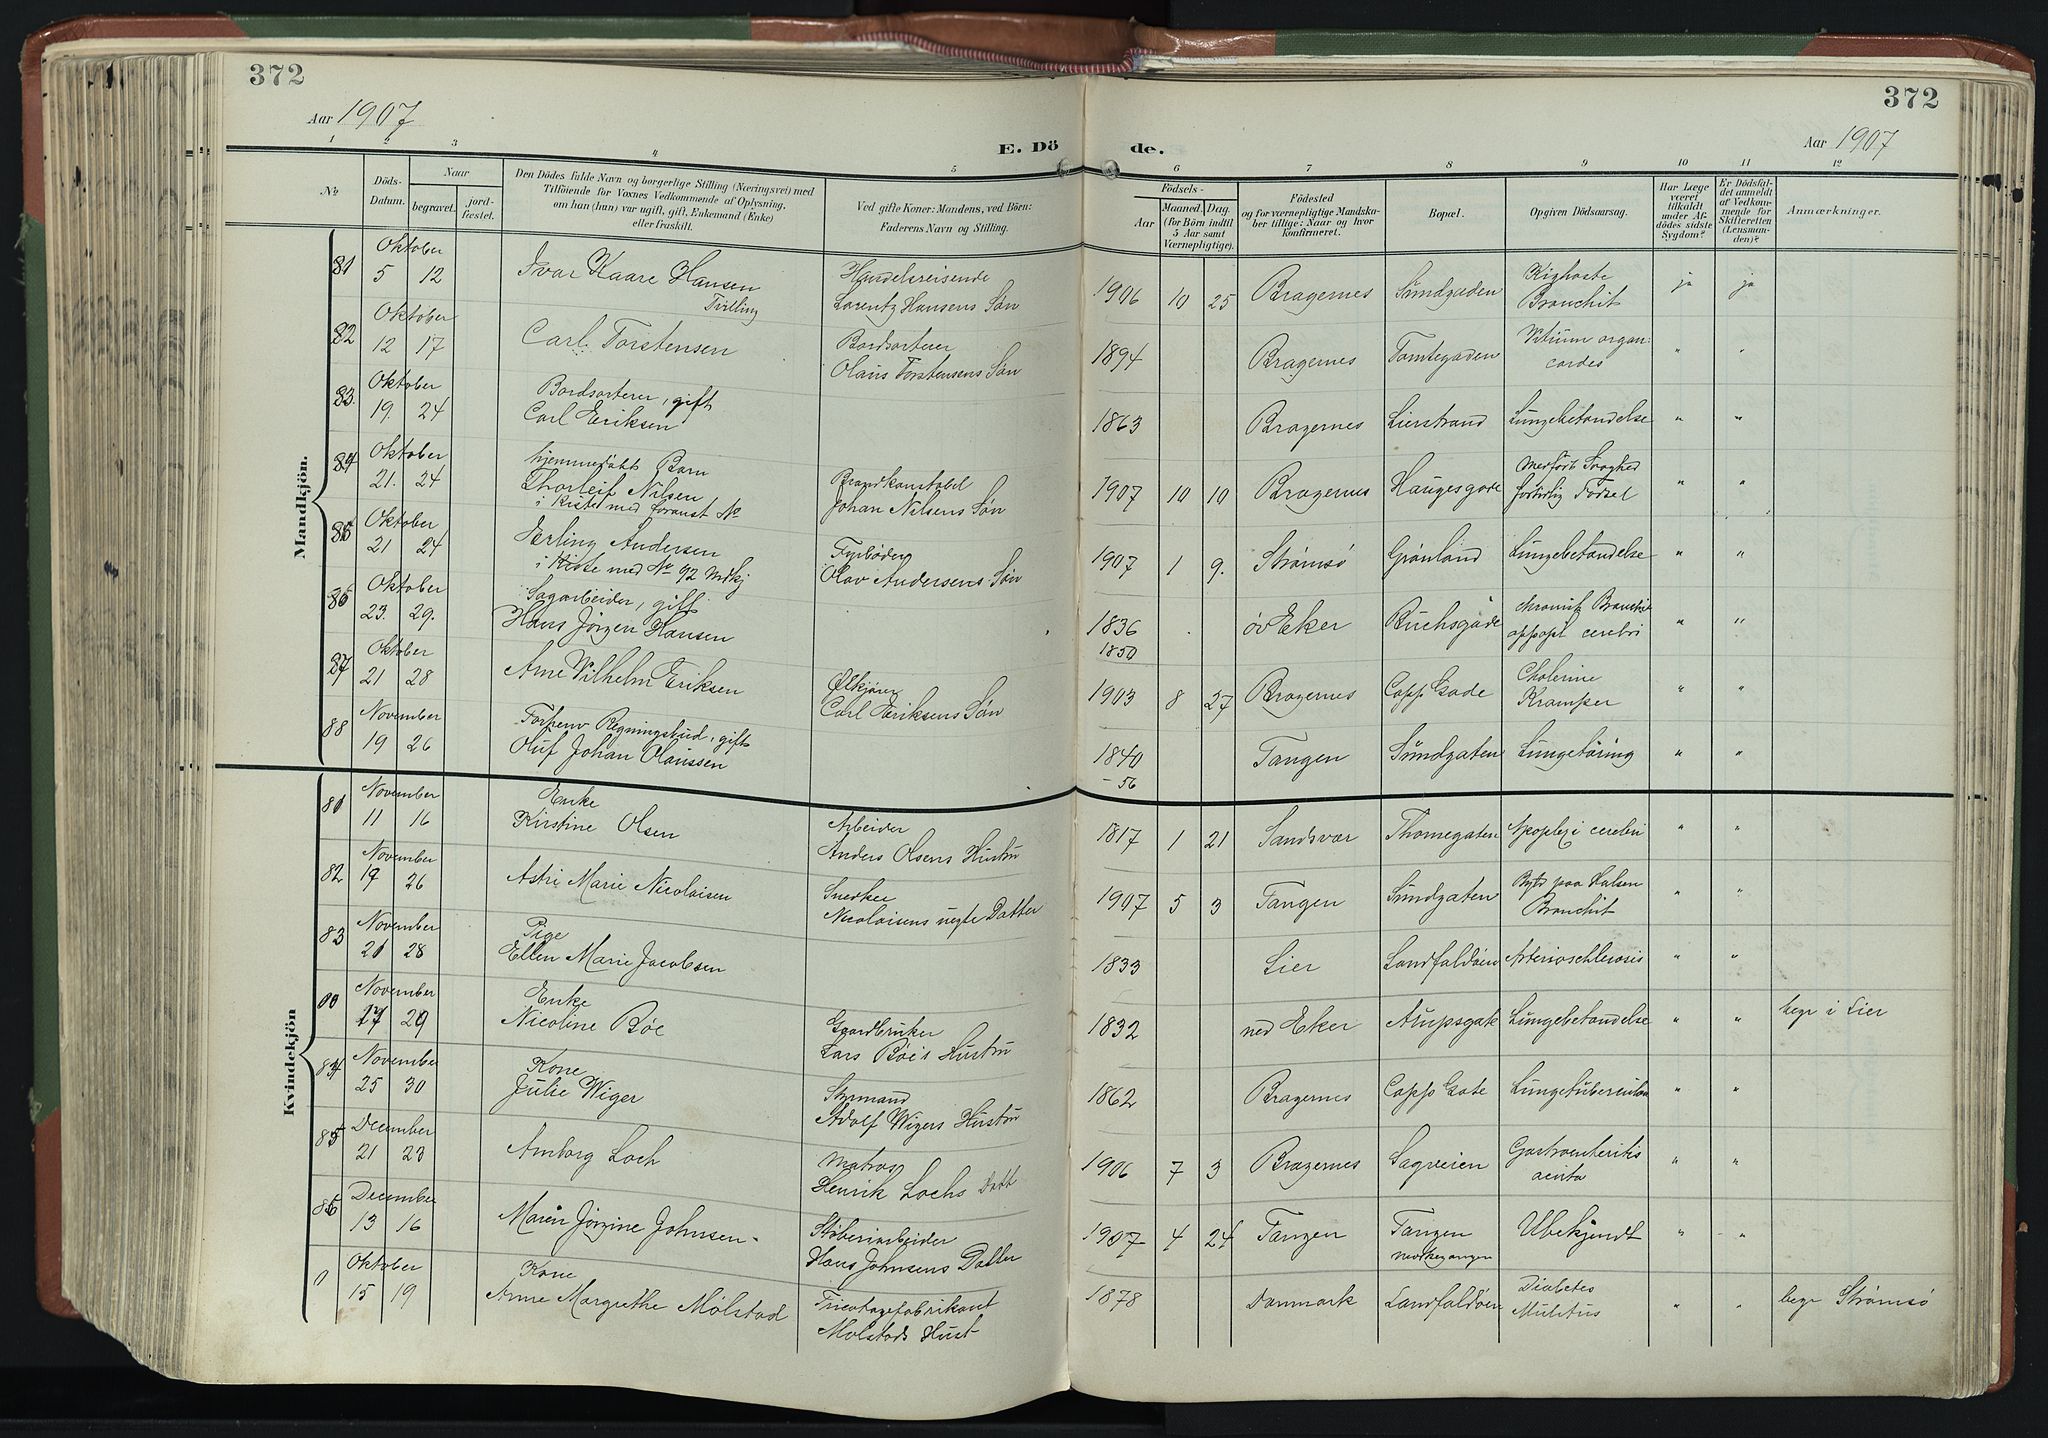 372
372
Aar 1907
Aar 1907
E. Dö
de.
1 2 3 4 5 6 7 8 9 10 11 12
No
Döds-Datum.
Naar
begravet.
jord-fæstet.
Den Dödes fulde Navn og borgerlige Stilling (Næringsvei) med
Tilföiende for Voxnes Vedkommende af Oplysning,
om han (hun) var ugift, gift, Enkemand (Enke)
eller fraskilt.
Ved gifte Koner: Mandens, ved Börn:
Faderens Navn og Stilling.
Födsels-
Aar
Maaned. Dag.
(for Börn indtil
5 Aar samt
Værnepligtige).
Födested
og for værnepligtige Mandska-
ber tillige: Naar og hvor
konfirmeret.
Bopæl.
Opgiven Dödsaarsag.
Har Læge
været
tilkaldt
under Af-
dödes sidste
Sygdom?
Er Dödsfal-
det anmeldt
af Vedkom-
mende for
Skifteretten
(Lensman-
den)?
Anmærkninger.
Mandkjön.
81 Oktober 5 12 Ivar Kaare Hansen Tvilling Handelsreisende Lorentz Hansens Søn 1906 10 25 Bragernes Sundgaden Kighoste Bronchit ja ja
82 Oktober 12 17 Carl Torstensen Bordsorterer Olaus Torstensens Søn 1894 Bragernes Tomtegaden Vitium organ: cordis " "
83. Oktober 19. 24 Bordsorterer, gift Carl Eriksen 1863 Bragernes Lierstrand Lungebetændelse " "
84 Oktober 21. 24 hjemmedøbt Barn Thorleif Nilsen i Kiste med foranst No Brandkonstabel Johan Nilsens Søn 1907 10 10 Bragernes Haugesgade Medfødt Svaghed fortidlig Fødsel " "
85 Oktober 21 24 Erling Andersen i Kiste med No 92 Mdkj Fyrbøder Olav Andersens Søn 1907 1 9. Strømsø Grønland Lungebetændelse " "
86 Oktober 23. 29. Sagarbeider, gift Hans Jörgen Hansen 1836 1850 øv Eker Buchsgade chronisk Bronchit appopl cerebri " "
87 Oktober 21 28 Arne Vilhelm Eriksen Ølkjører Carl Eriksens Søn 1903 8 27 Bragernes Capp Gade Cholerine Kramper " "
88 November 19 26 Forhenv Regningsbud, gift Oluf Johan Olaussen 1840 -56 Tangen Sundgaten Lungetæring " "
Kvindekjön
81 November 11 16 Enke Kirstine Olsen Arbeider Anders Olsens Hustru 1817 1 21 Sandsvær Thornegaten Apoplexi cerebri " "
82 November 19 26 Astri Marie Nicolaisen Snedker Nicolaisens ægte Datter 1907 5 3 Tangen Sundgaten Byld paa Halsen Bronchit " "
83 November 21 28 Pige Ellen Marie Jacobsen 1833 Lier Landfaldøen Arterioschlerosis " "
00 November 17 29 Enke Nicoline Bøe Gaardbruker Lars Bøes Hustru 1832 ned Eker Arupsgate Lungebetændelse " " begr i Lier
84 November 25 30 Kone Julie Wiger Styrmand Adolf Wigers Hustru 1862 Bragernes Capp Gate Lungetuberculose " "
85 December 21 23 Amborg Loch Matros Henrik Lochs Datt 1906 7 3 Bragernes Sagveien Gastroenteritis acuta " "
86 December 13 16 Maren Jørgine Johnsen- Støberiarbeider Hans Johnsens Datter 1907 4 24 Tangen Tangen Ubekjendt " "
0 Oktober 15 19 Kone Anne Margrethe Mölstad Tricotagefabrikant Molstads Hust 1878 Danmark Landfaldøen Diabetes Melitus " " begr Strømsø